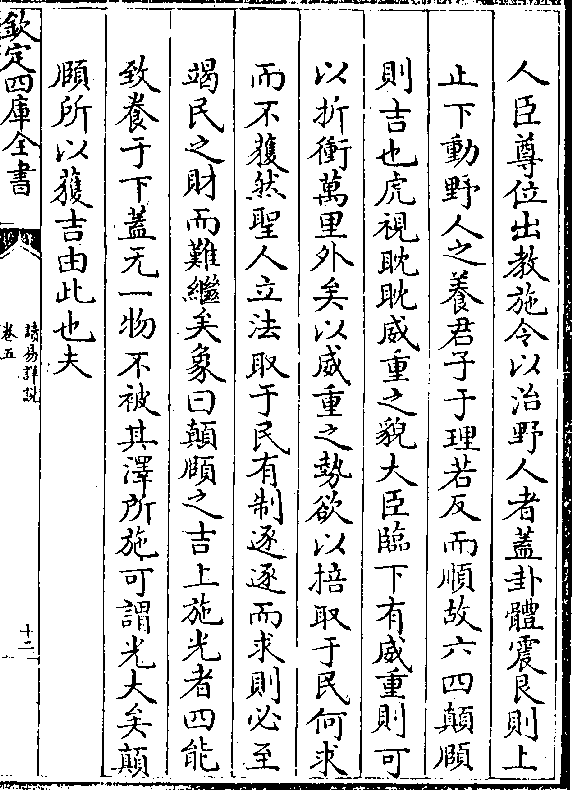 人臣尊位出教施令以治野人者蓋卦體震艮則上
止下動野人之養君子于理若反而順故六四顛頤
則吉也虎視眈眈威重之貌大臣臨下有威重則可
以折衝萬里外矣以威重之勢欲以掊取于民何求
而不獲然聖人立法取于民有制逐逐而求則必至
竭民之財而難繼矣象曰顛頤之吉上施光者四能
致養于下蓋无一物不被其澤所施可謂光大矣顛
頤所以獲吉由此也夫
欽定四庫全書
讀易詳說
卷五
十二